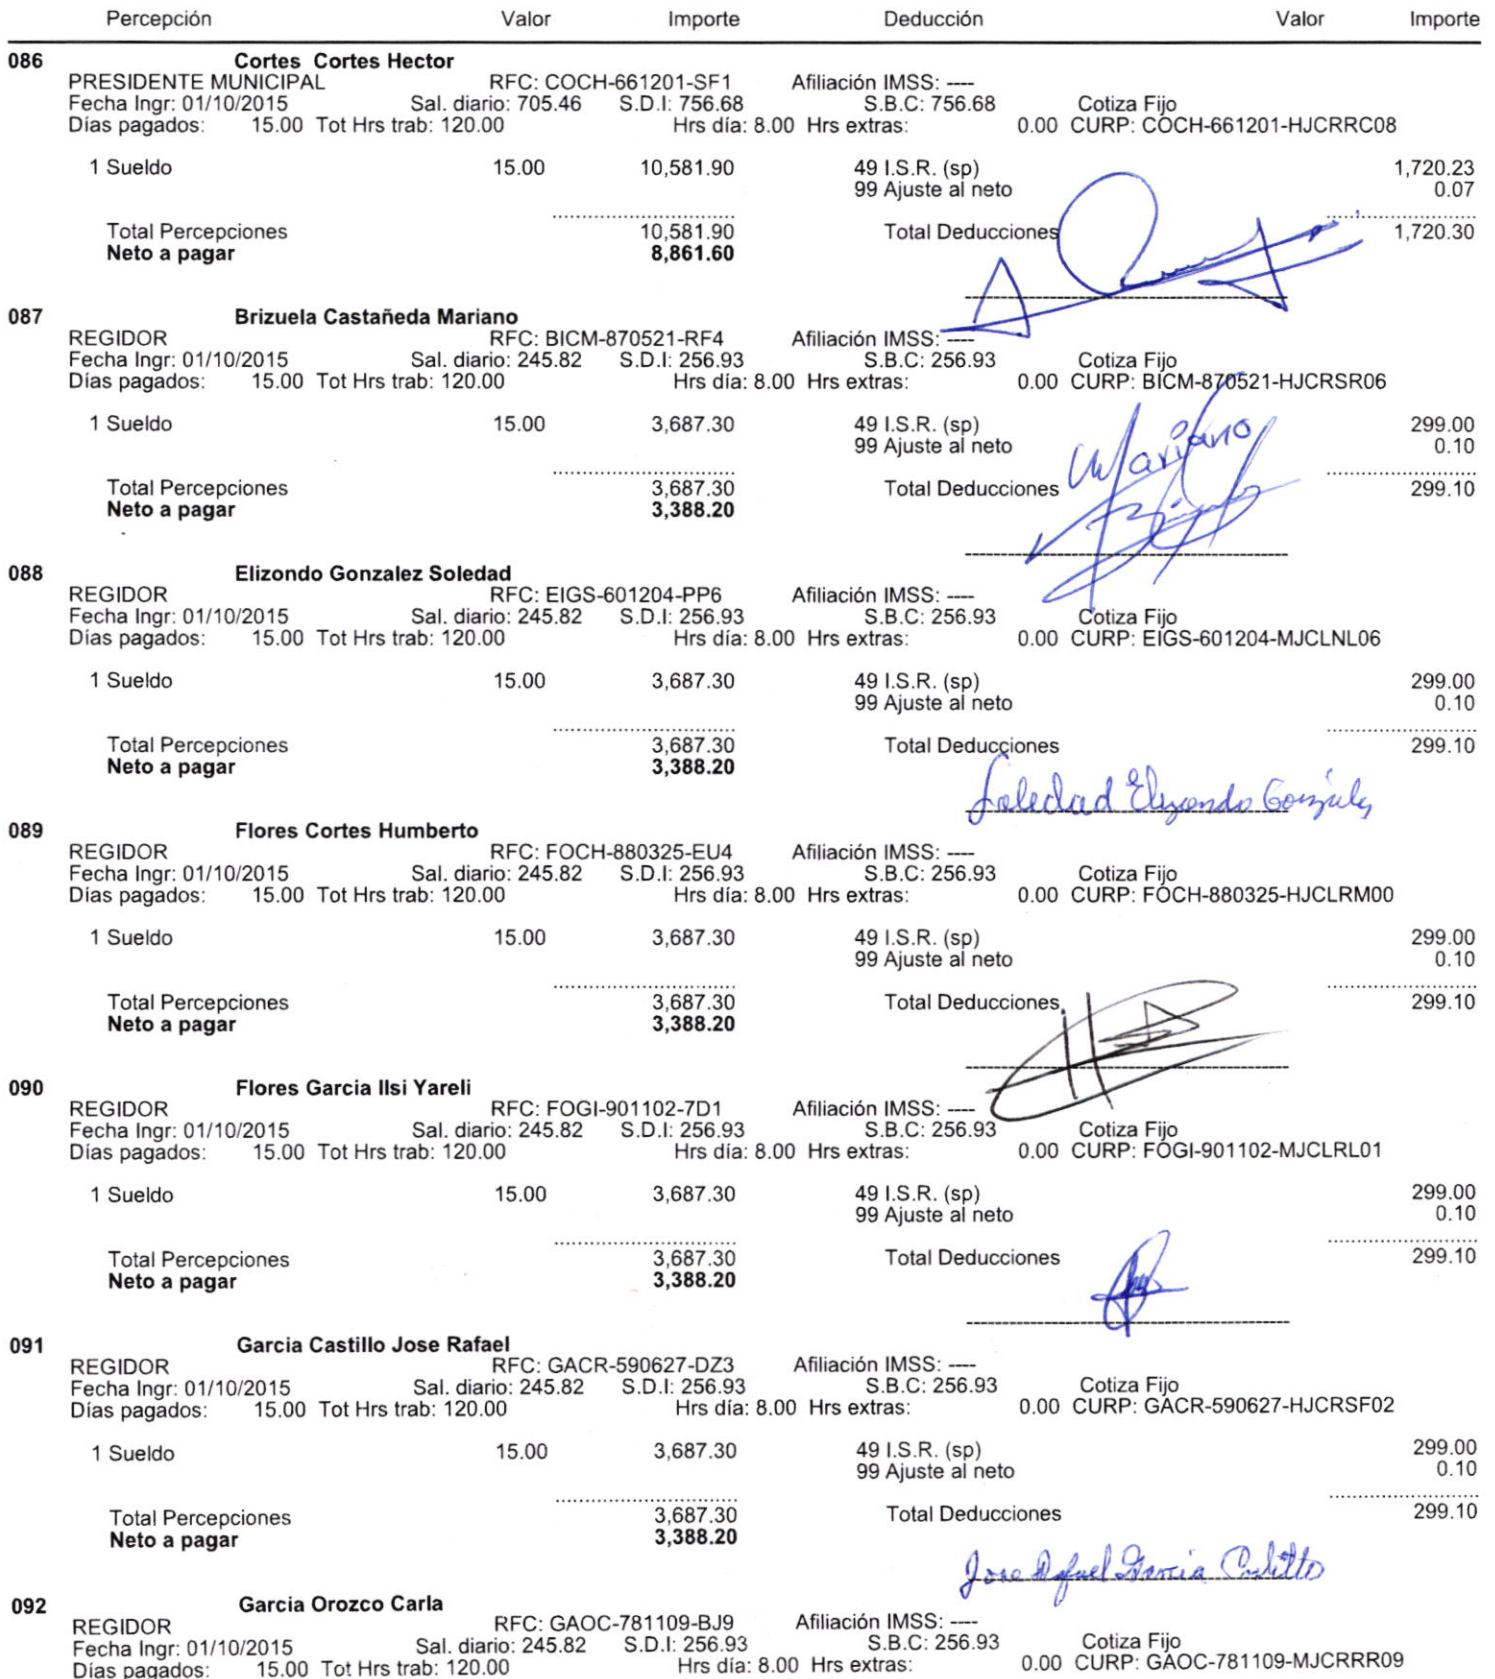 Percepción Valor Importe Deducción Valor Importe
086 Cortes Cortes Hector
PRESIDENTE MUNICIPAL RFC: COCH-661201-SF1 Afiliación IMSS: ----
Fecha Ingr: 01/10/2015 Sal. diario: 705.46 S.D.I: 756.68 S.B.C: 756.68 Cotiza Fijo
Días pagados: 15.00 Tot Hrs trab: 120.00 Hrs día: 8.00 Hrs extras: 0.00 CURP: COCH-661201-HJCRRC08
1 Sueldo 15.00 10,581.90 49 I.S.R. (sp) 1,720.23
99 Ajuste al neto 0.07
Total Percepciones 10,581.90 Total Deducciones 1,720.30
Neto a pagar 8,861.60
087 Brizuela Castañeda Mariano
REGIDOR RFC: BICM-870521-RF4 Afiliación IMSS: ----
Fecha Ingr: 01/10/2015 Sal. diario: 245.82 S.D.I: 256.93 S.B.C: 256.93 Cotiza Fijo
Días pagados: 15.00 Tot Hrs trab: 120.00 Hrs día: 8.00 Hrs extras: 0.00 CURP: BICM-870521-HJCRSR06
1 Sueldo 15.00 3,687.30 49 I.S.R. (sp) 299.00
99 Ajuste al neto 0.10
Mariano
Total Percepciones 3,687.30 Total Deducciones 299.10
Neto a pagar 3,388.20
088 Elizondo Gonzalez Soledad
REGIDOR RFC: EIGS-601204-PP6 Afiliación IMSS: ----
Fecha Ingr: 01/10/2015 Sal. diario: 245.82 S.D.I: 256.93 S.B.C: 256.93 Cotiza Fijo
Días pagados: 15.00 Tot Hrs trab: 120.00 Hrs día: 8.00 Hrs extras: 0.00 CURP: EIGS-601204-MJCLNL06
1 Sueldo 15.00 3,687.30 49 I.S.R. (sp) 299.00
99 Ajuste al neto 0.10
Total Percepciones 3,687.30 Total Deducciones 299.10
Neto a pagar 3,388.20
Soledad Elizondo González
089 Flores Cortes Humberto
REGIDOR RFC: FOCH-880325-EU4 Afiliación IMSS: ----
Fecha Ingr: 01/10/2015 Sal. diario: 245.82 S.D.I: 256.93 S.B.C: 256.93 Cotiza Fijo
Días pagados: 15.00 Tot Hrs trab: 120.00 Hrs día: 8.00 Hrs extras: 0.00 CURP: FOCH-880325-HJCLRM00
1 Sueldo 15.00 3,687.30 49 I.S.R. (sp) 299.00
99 Ajuste al neto 0.10
Total Percepciones 3,687.30 Total Deducciones 299.10
Neto a pagar 3,388.20
090 Flores Garcia Ilsi Yareli
REGIDOR RFC: FOGI-901102-7D1 Afiliación IMSS: ----
Fecha Ingr: 01/10/2015 Sal. diario: 245.82 S.D.I: 256.93 S.B.C: 256.93 Cotiza Fijo
Días pagados: 15.00 Tot Hrs trab: 120.00 Hrs día: 8.00 Hrs extras: 0.00 CURP: FOGI-901102-MJCLRL01
1 Sueldo 15.00 3,687.30 49 I.S.R. (sp) 299.00
99 Ajuste al neto 0.10
Total Percepciones 3,687.30 Total Deducciones 299.10
Neto a pagar 3,388.20
091 Garcia Castillo Jose Rafael
REGIDOR RFC: GACR-590627-DZ3 Afiliación IMSS: ----
Fecha Ingr: 01/10/2015 Sal. diario: 245.82 S.D.I: 256.93 S.B.C: 256.93 Cotiza Fijo
Días pagados: 15.00 Tot Hrs trab: 120.00 Hrs día: 8.00 Hrs extras: 0.00 CURP: GACR-590627-HJCRSF02
1 Sueldo 15.00 3,687.30 49 I.S.R. (sp) 299.00
99 Ajuste al neto 0.10
Total Percepciones 3,687.30 Total Deducciones 299.10
Neto a pagar 3,388.20
Jose Rafael Garcia Castillo
092 Garcia Orozco Carla
REGIDOR RFC: GAOC-781109-BJ9 Afiliación IMSS: ----
Fecha Ingr: 01/10/2015 Sal. diario: 245.82 S.D.I: 256.93 S.B.C: 256.93 Cotiza Fijo
Días pagados: 15.00 Tot Hrs trab: 120.00 Hrs día: 8.00 Hrs extras: 0.00 CURP: GAOC-781109-MJCRRR09